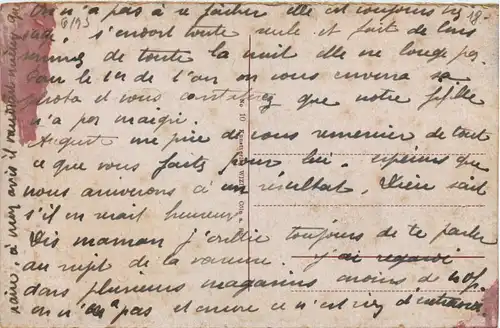 On n'a pas à se fâcher elle est toujours très
sage, s'endort toute seule et fait de bons
sommes de toute la nuit elle ne bouge pas.
Pour le 1er de l'an on vous enverra sa
photo et vous constaterez que notre fifille
n'a pas maigri.
Auguste me prie de vous remercier de tout
ce que vous faites pour lui, espérons que
nous arriverons à un résultat. Dieu sait
s'il en serait heureux
Dis maman j'oublie toujours de te parler
au sujet de la j'ai regardé
dans plusieurs magasins moins de
on n'en a pas et encore ce n'est rien d'extra
à mon avis il vaudrait mieux que